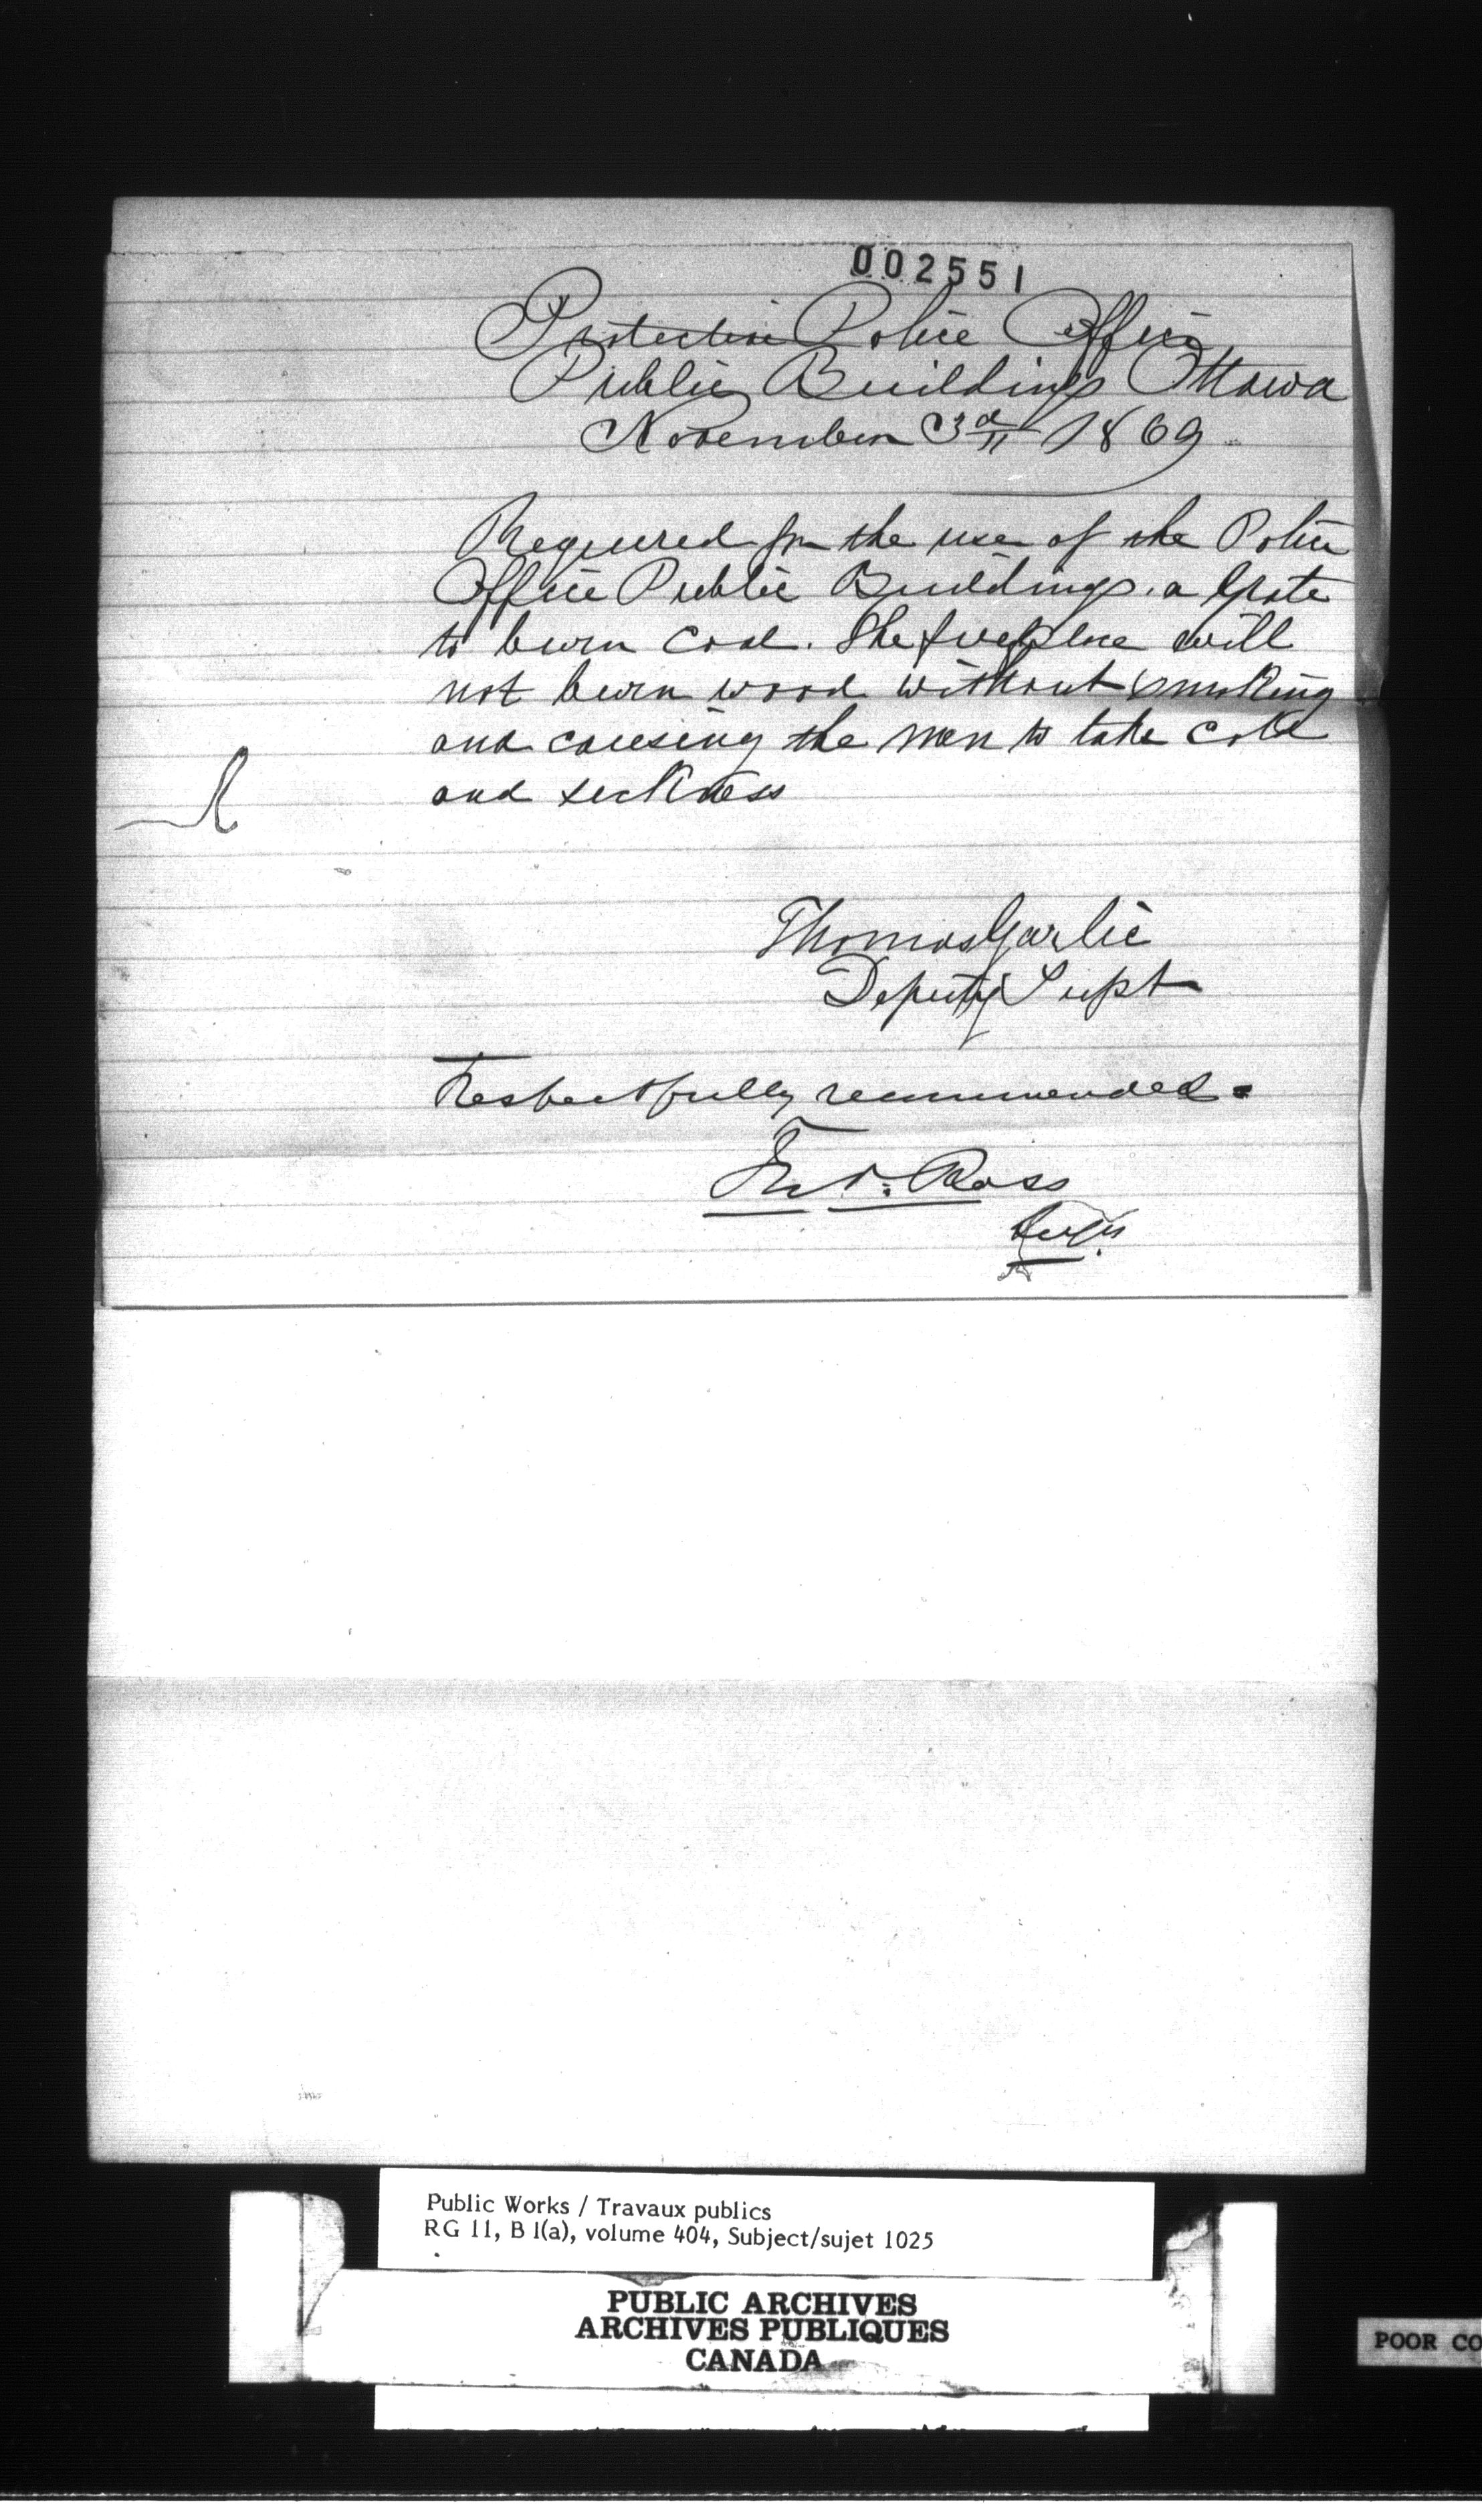 002551
Protective Police Office
Public Buildings Ottawa
November 3d 1869
Required for the use of the Police
Office Public Buildings. a Grate
to burn Coal. The fireplace will
not burn wood without smoking
and causing the men to take cold
and sickness
Thomas Garlic
Deputy Supt
Respectfully recommended.
Ross
Public Works / Travaux publics
RG 11, B 1(a), volume 404, Subject/sujet 1025
PUBLIC ARCHIVES
ARCHIVES PUBLIQUES
CANADA
POOR CO